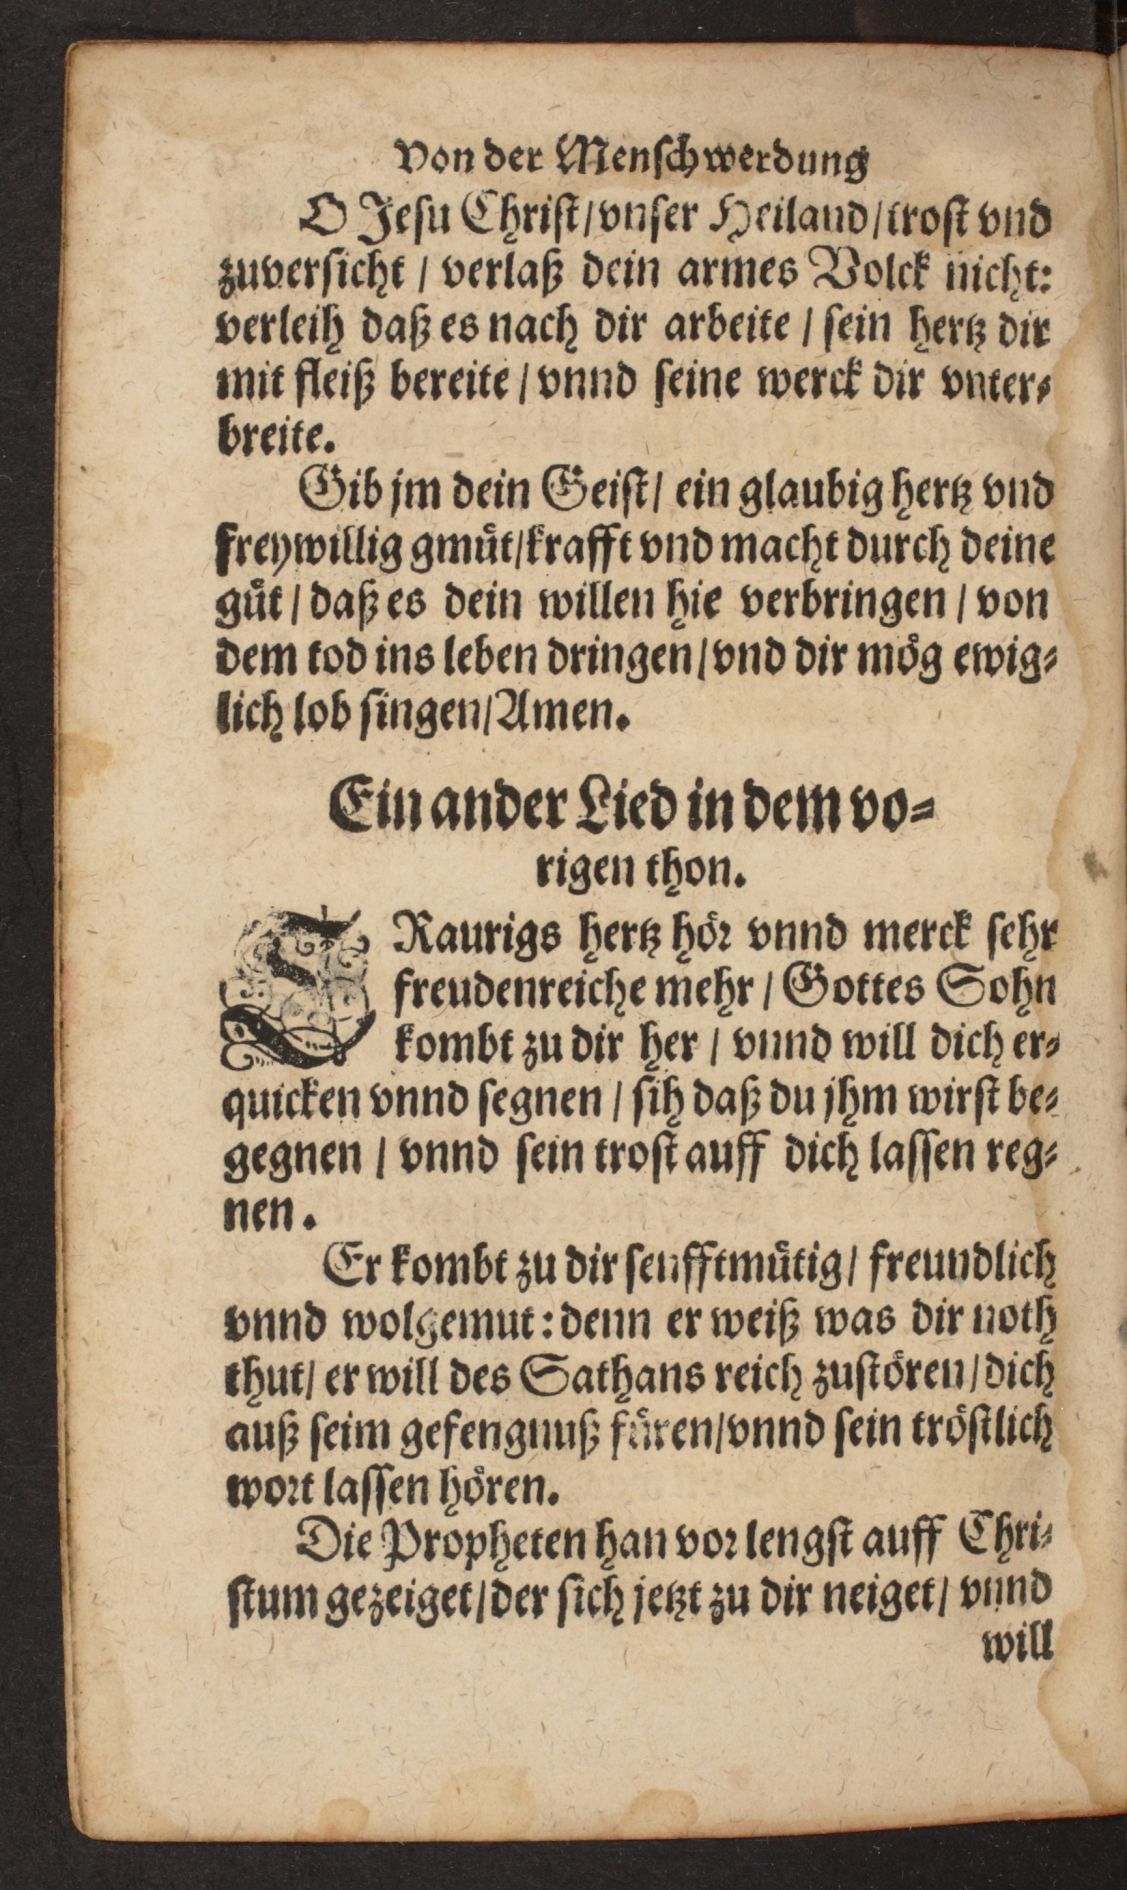 Von der Menschwerdung
O Jesu Christ/vnser Heiland/trost vnd
zuversicht / verlaß dein armes Volck nicht:
verleih daß es nach dir arbeite / sein hertz dir
mit fleiß bereite / vnnd seine werck dir vnter-
breite.
Gib jm dein Geist/ ein glaubig hertz vnd
freywillig gmuͤt/krafft vnd macht durch deine
guͤt / daß es dein willen hie verbringen / von
dem tod ins leben dringen/vnd dir moͤg ewig-
lich lob singen/Amen.
Ein ander Lied in dem vo-
rigen thon.
TRaurigs hertz hoͤr vnnd merck sehr
freudenreiche mehr / Gottes Sohn
kombt zu dir her / vnnd will dich er-
quicken vnnd segnen / sih daß du jhm wirst be-
gegnen / vnnd sein trost auff dich lassen reg-
nen.
Er kombt zu dir senfftmuͤtig/ freundlich
vnnd wolgemut: denn er weiß was dir noth
thut/ er will des Sathans reich zustoͤren/dich
auß seim gefengnuß fuͤren/vnnd sein troͤstlich
wort lassen hoͤren.
Die Propheten han vor lengst auff Chri-
stum gezeiget/der sich jetzt zu dir neiget/ vnnd
will